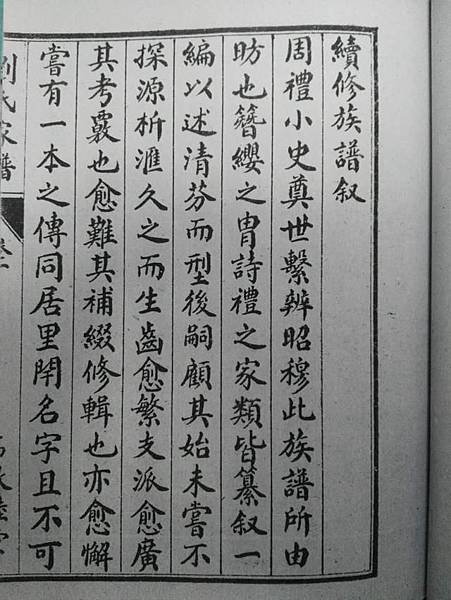 續修族譜叙
周禮小史奠世繫辨昭穆此族譜所由
昉也簪纓之胄詩禮之家類皆纂叙一
編以述清芬而型後嗣顧其始未嘗不
探源析滙久之而生齒愈繁支派愈廣
其考覈也愈難其補綴修輯也亦愈懈
嘗有一本之傳同居里閈名字且不可
劉氏家譜